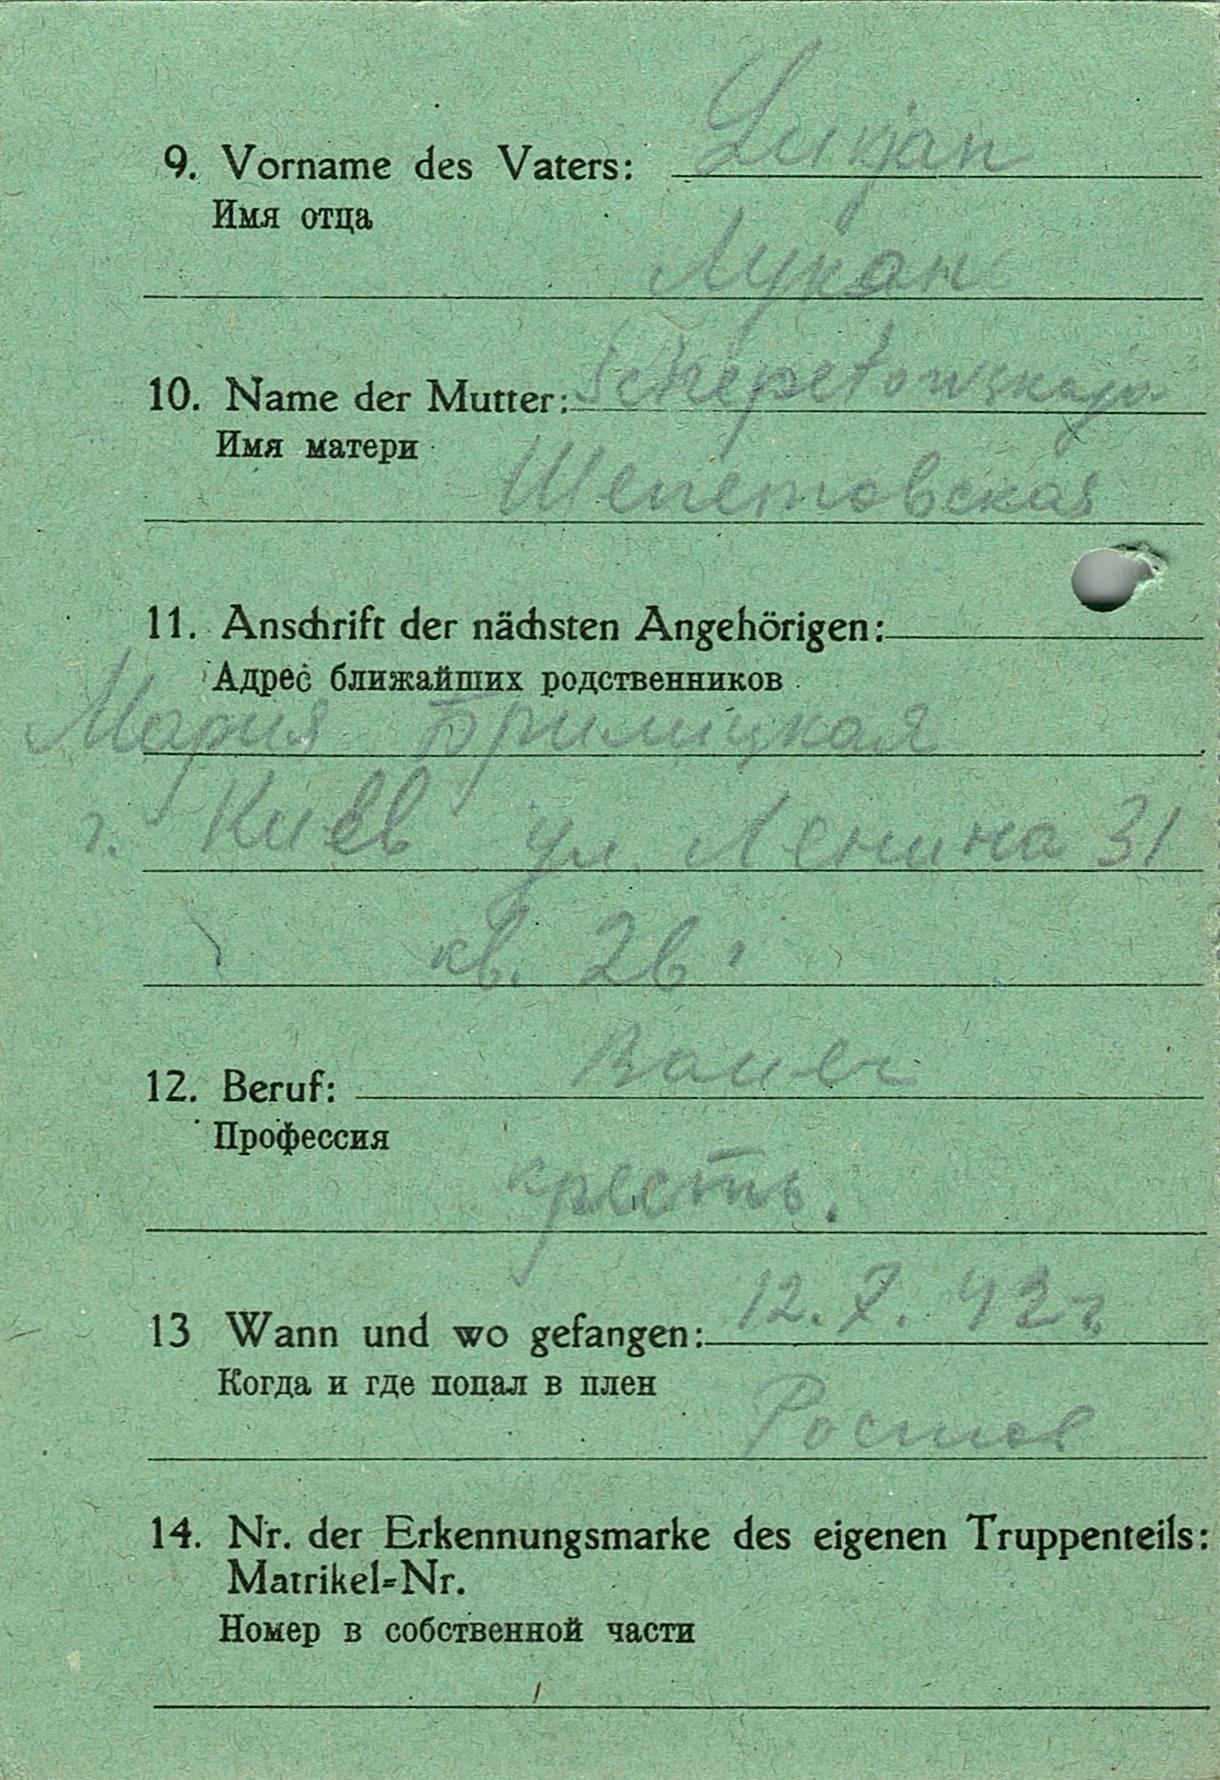 9. Vorname des Vaters: Lukjan
Имя отца
Лукан
10. Name der Mutter: Schepetowskaja
Имя матери
Шепетовская
11. Anschrift der nächsten Angehörigen:
Адрес ближайших родственников
Мария
г. Киев ул. Ленина 31
кв. 26
12. Beruf: Bauer
Профессия
кресть.
13 Wann und wo gefangen: 12.7.42г.
Когда и где попал в плен
Ростов
14. Nr. der Erkennungsmarke des eigenen Truppenteils:
Matrikel=Nr.
Номер в собственной части